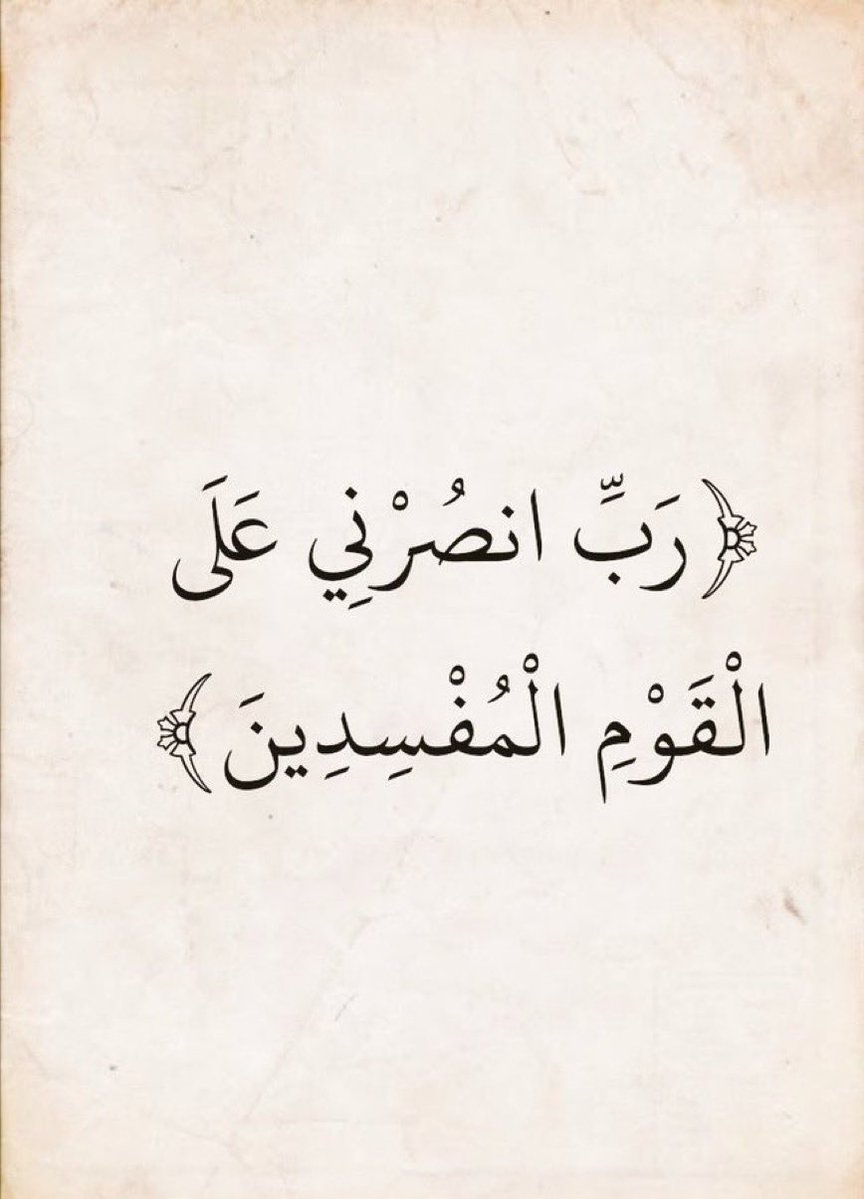 ﴿رَبِّ انصُرْنِي عَلَى
الْقَوْمِ الْمُفْسِدِينَ﴾